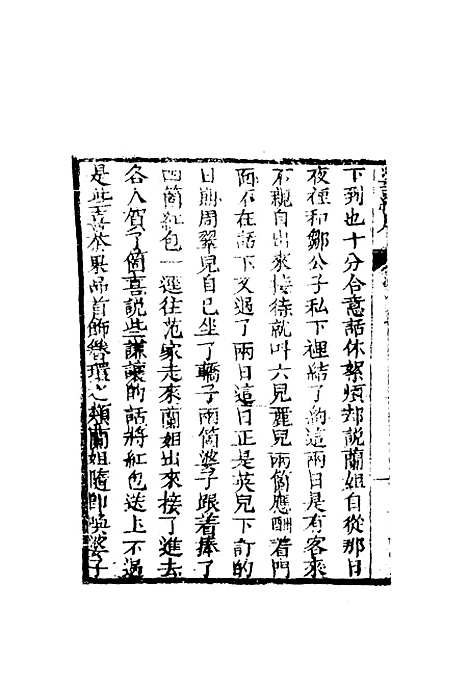 下到也十分合意話休絮煩却説蘭姐自從那日
夜裡和鄒公子私下裡結了約這兩日是有客來
不親自出來接待就叫六兒麗兒兩箇應酬着門
面不在話下又過了兩日這日正是英兒下訂的
日期周翠兒自己坐了轎子兩箇婆子跟着捧了
四箇紅包一逕往范家走來蘭姐出來接了進去
各人賀了箇喜説些謙讓的話將紅包送上不過
是些喜茶果品首飾簪環之類蘭姐隨即喚婆子